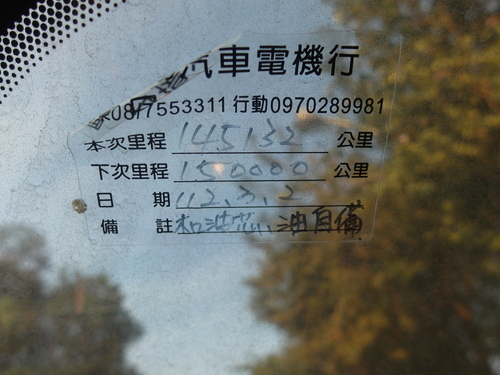 汽車電機行
08-7553311 行動0970289981
本次里程 145132 公里
下次里程 150000 公里
日期 112.3.2
備註 和油芯,油自備